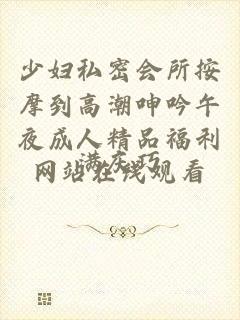 少妇私密会所按
摩到高潮呻吟午
夜成人精品福利
网站在线观看